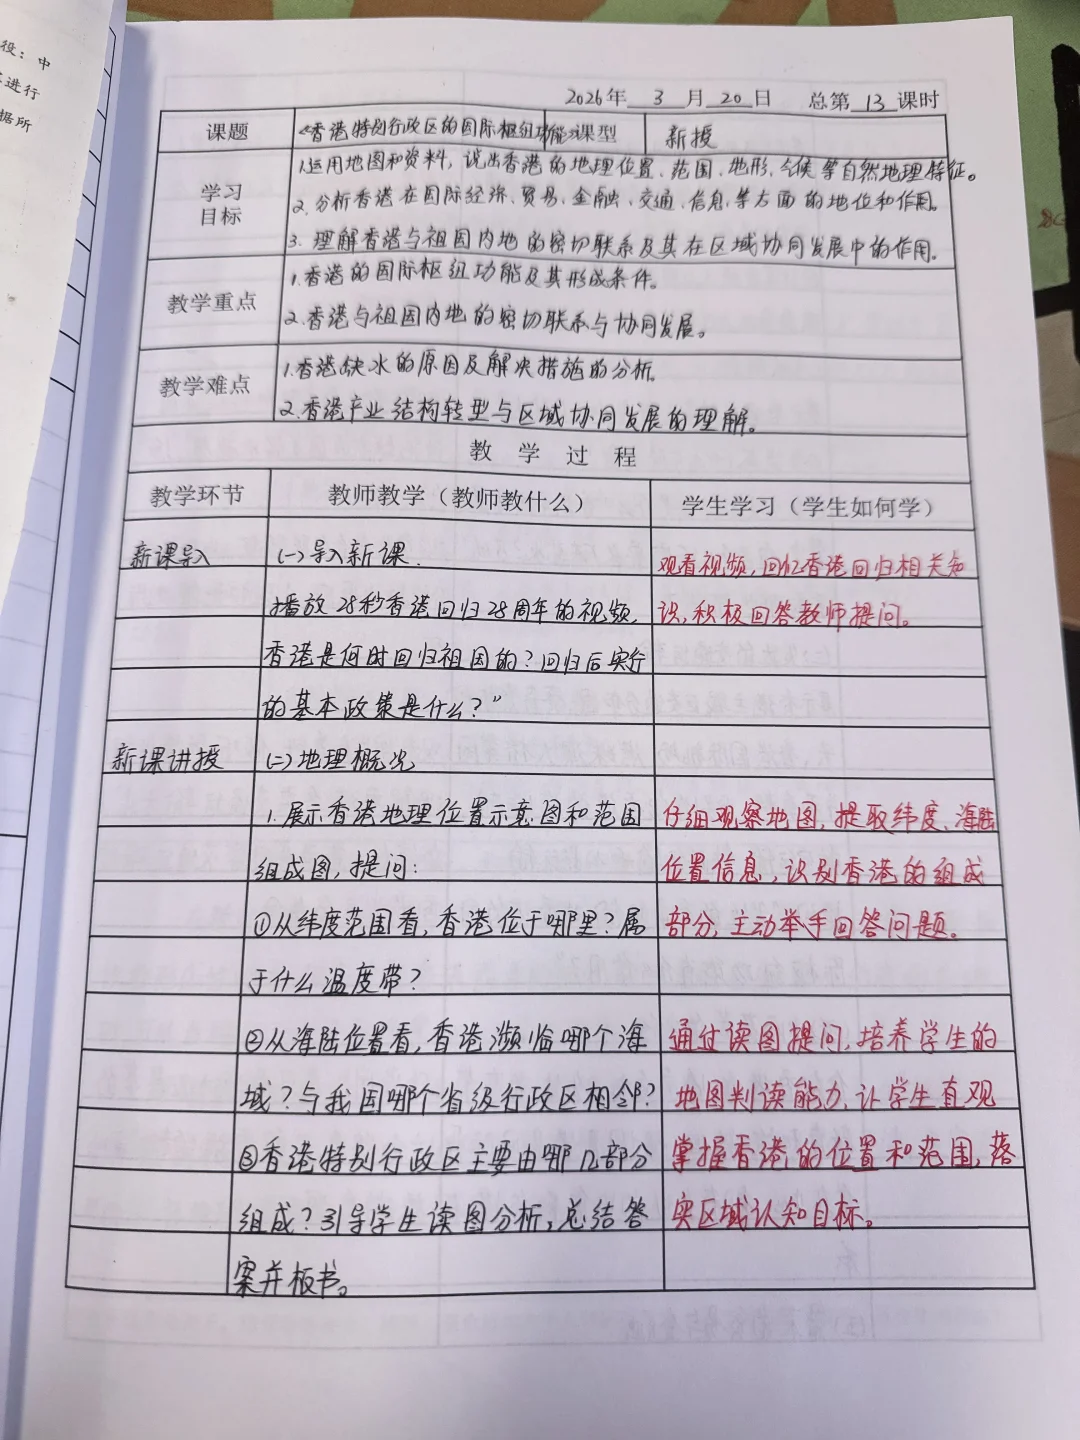 役：中
进行
据所
2026年 3 月 20 日 总第 13 课时
课题 《香港特别行政区的国际枢纽功能》 课型 新授
学习目标 1.运用地图和资料，说出香港的地理位置、范围、地形、气候等自然地理特征。
2.分析香港在国际经济、贸易、金融、交通、信息等方面的地位和作用。
3.理解香港与祖国内地的密切联系及其在区域协同发展中的作用。
教学重点 1.香港的国际枢纽功能及其形成条件。
2.香港与祖国内地的密切联系与协同发展。
教学难点 1.香港缺水的原因及解决措施的分析。
2.香港产业结构转型与区域协同发展的理解。
教 学 过 程
教学环节 教师教学（教师教什么） 学生学习（学生如何学）
新课导入 (一)导入新课. 观看视频，回忆香港回归相关知
播放28秒香港回归28周年的视频， 识，积极回答教师提问。
香港是何时回归祖国的？回归后实行
的基本政策是什么？”
新课讲授 (二)地理概况
1.展示香港地理位置示意图和范围 仔细观察地图，提取纬度、海陆
组成图，提问： 位置信息，识别香港的组成
①从纬度范围看，香港位于哪里？属 部分，主动举手回答问题。
于什么温度带？
②从海陆位置看，香港濒临哪个海 通过读图提问，培养学生的
域？与我国哪个省级行政区相邻？ 地图判读能力，让学生直观
③香港特别行政区主要由哪几部分 掌握香港的位置和范围，落
组成？引导学生读图分析，总结答 实区域认知目标。
案并板书。